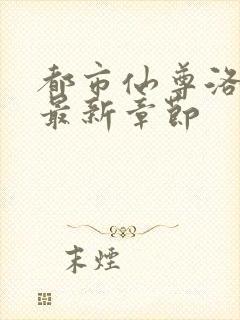 都市仙尊洛
最新章节
末煙